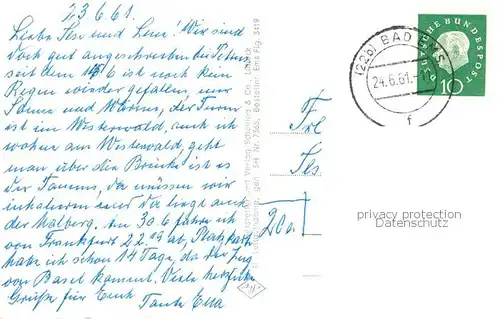 23.6.61.
Liebe Ilse und Leni! Wir sind
doch gut angeschrieben bei Petrus
seit dem 15/6 ist noch kein
Regen wieder gefallen, nur
Sonne und Wärme, der Turm
ist im Westerwald, auch ich
wohne am Westerwald, geht
man über die Brücke ist es
der Taunus, da müssen wir
inhalieren und da liegt auch
der Malberg. Am 30.6 fahre ich
von Frankfurt 22.09 ab, Platzkarte
habe ich schon 14 Tage, da der Zug
von Basel kommt. Viele herzliche
Grüße für Euch Tante Ella
Schöning & Co., Lübeck
Bestellnr. Ems Rg. 3419
Frl.
(22b) BAD EMS
24.6.61.
f
DEUTSCHE BUNDESPOST
10
privacy protection
Datenschutz